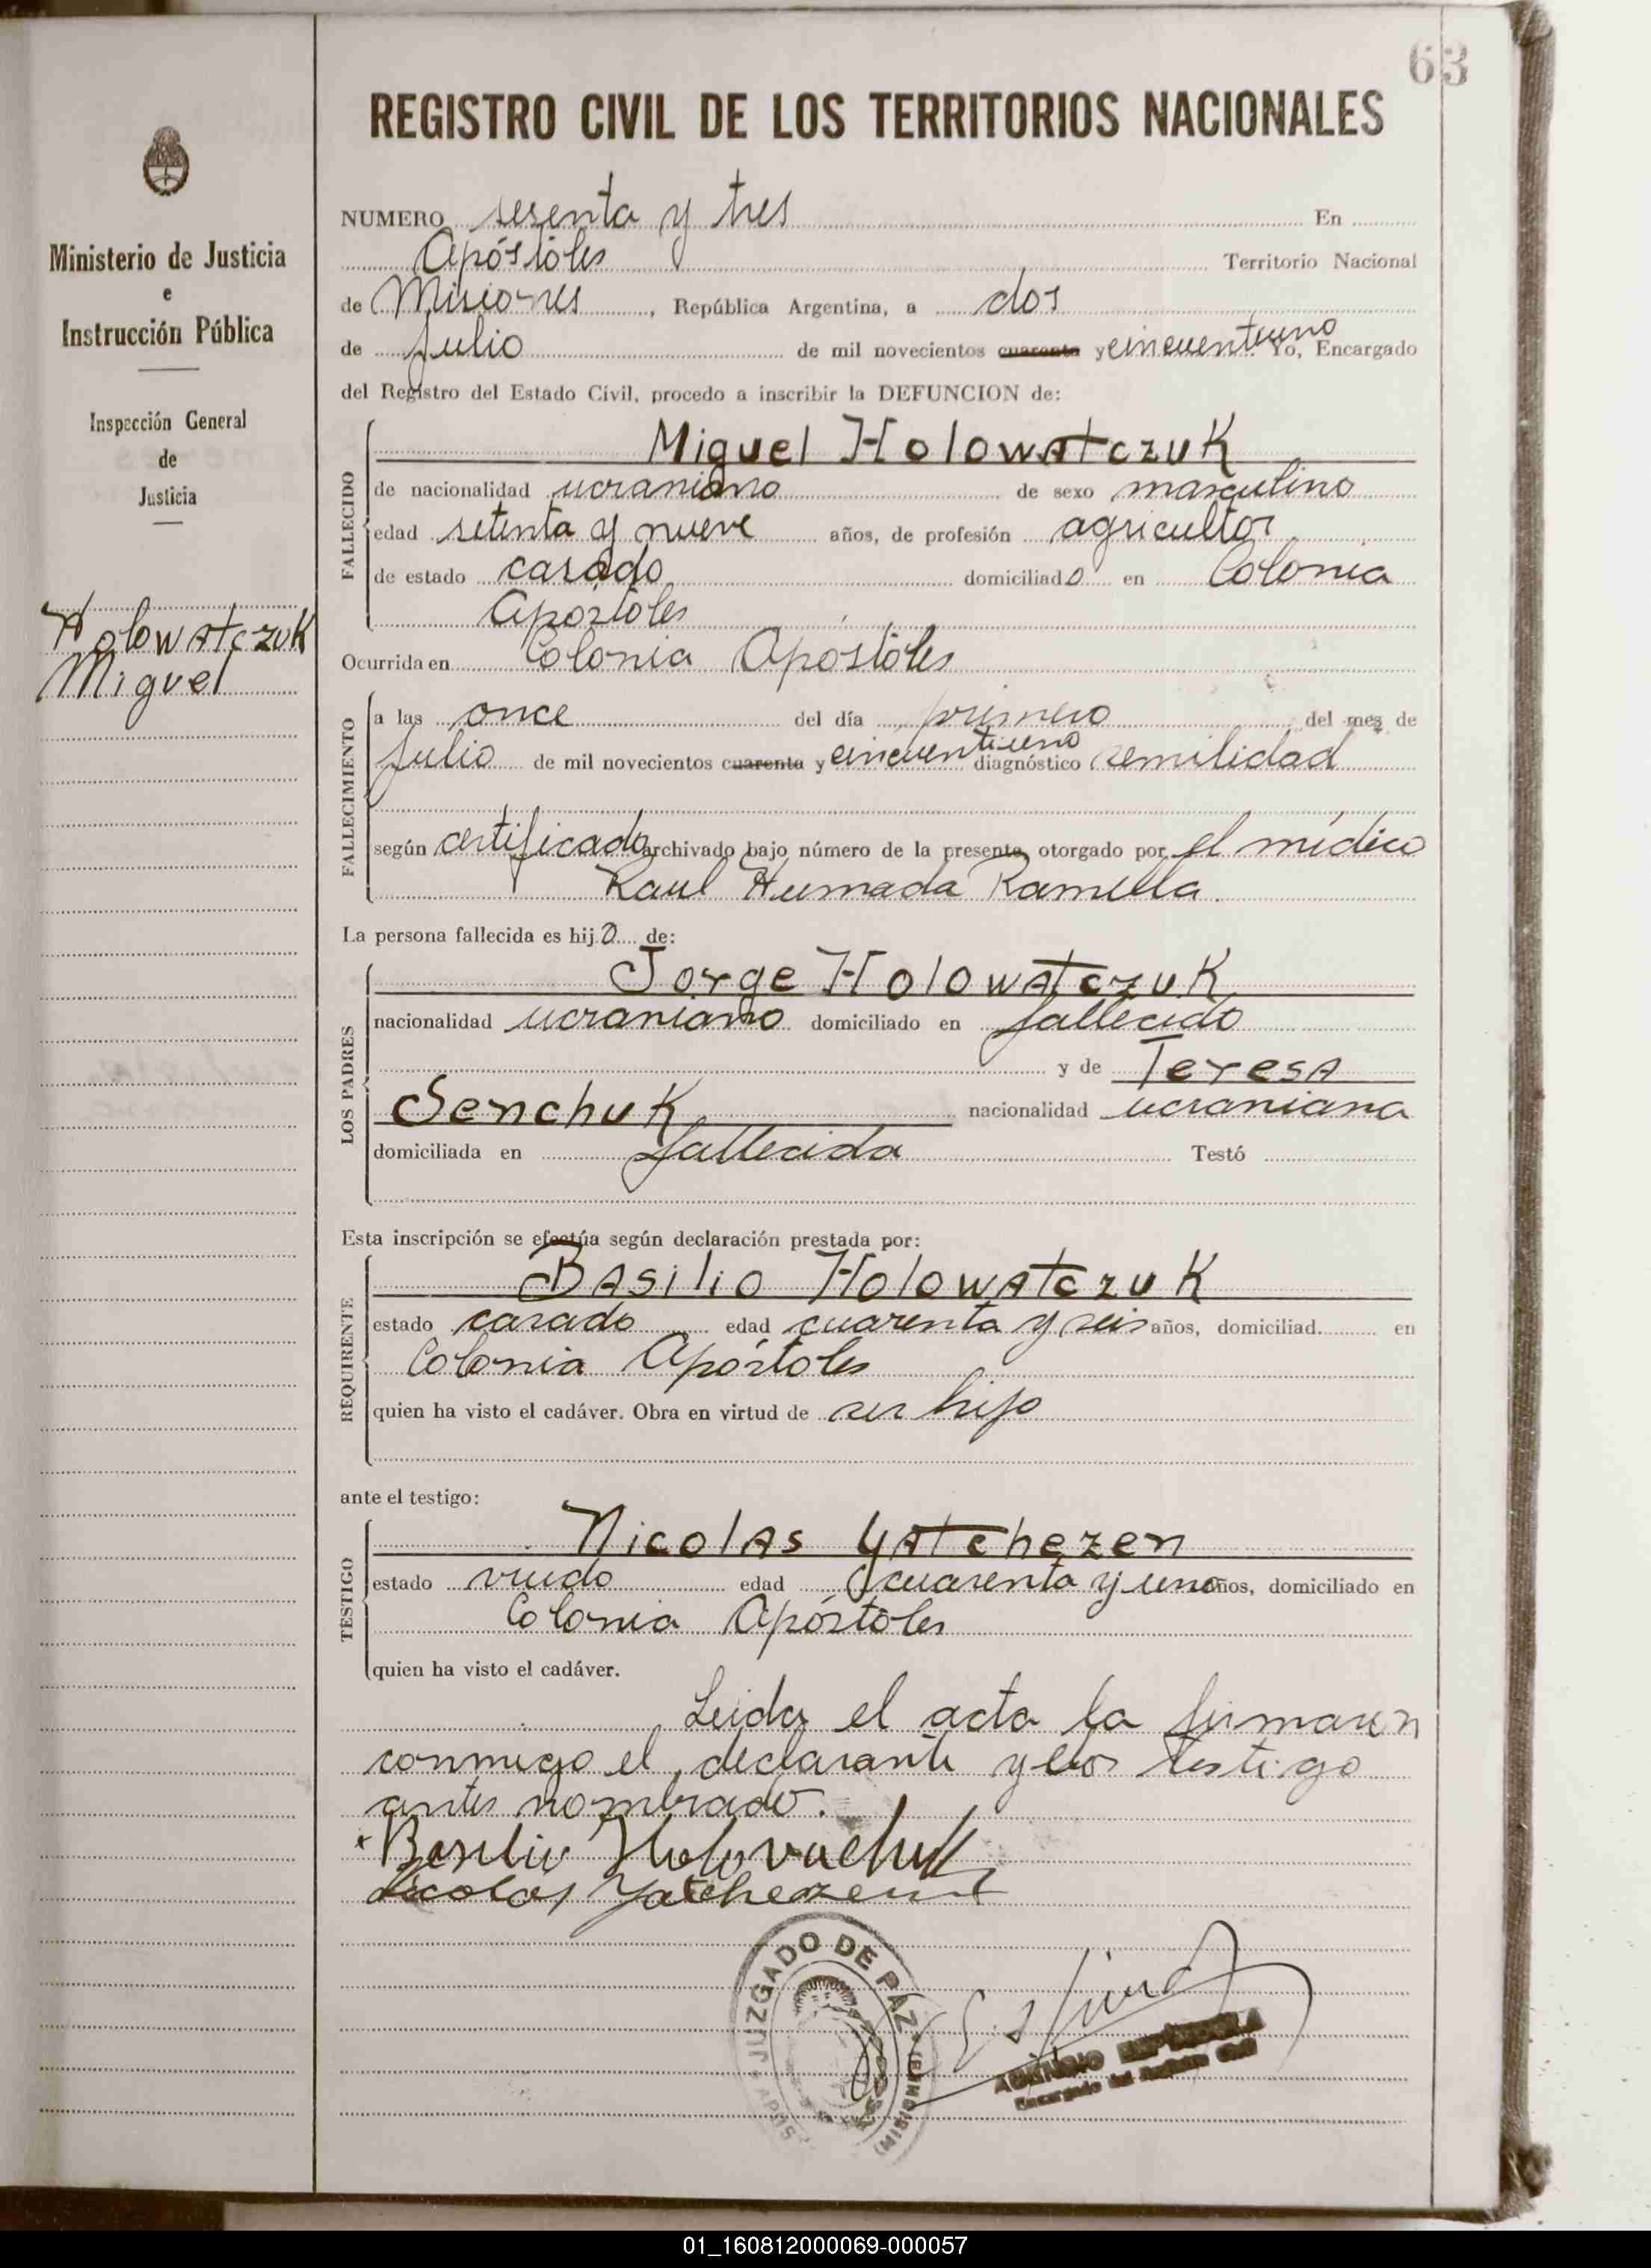 63
REGISTRO CIVIL DE LOS TERRITORIOS NACIONALES
Ministerio de Justicia
e
Instrucción Pública
Inspección General
de
Justicia
Holowatczuk
Miguel
NUMERO sesenta y tres En
Apóstoles Territorio Nacional
de Misiones, República Argentina, a dos
de Julio de mil novecientos cuarenta y cincuentiuno Yo, Encargado
del Registro del Estado Civil, procedo a inscribir la DEFUNCION de:
FALLECIDO
Miguel Holowatczuk
de nacionalidad ucraniano de sexo masculino
edad setenta y nueve años, de profesión agricultor
de estado casado domiciliado en Colonia
Apóstoles
Ocurrida en Colonia Apóstoles
FALLECIMIENTO
a las once del día primero del mes de
Julio de mil novecientos cuarenta y cincuentiuno diagnóstico senilidad
según certificado archivado bajo número de la presente, otorgado por el médico
Raul Humada Ramella.
La persona fallecida es hijo de:
LOS PADRES
Jorge Holowatczuk
nacionalidad ucraniano domiciliado en fallecido
y de Teresa
Senchuk nacionalidad ucraniana
domiciliada en fallecida Testó
Esta inscripción se efectúa según declaración prestada por:
REQUIRENTE
Basilio Holowatczuk
estado casado edad cuarenta y seis años, domiciliad en
Colonia Apóstoles
quien ha visto el cadáver. Obra en virtud de ser hijo
ante el testigo:
TESTIGO
Nicolas Yatchezen
estado viudo edad cuarenta y uno años, domiciliado en
Colonia Apóstoles
quien ha visto el cadáver.
Leida el acta la firmaron
conmigo el declarante y el testigo
antes nombrado.
Basilio Holovachuk
Nicolas Yatchezen
JUZGADO DE PAZ
Encargado del Registro Civil
01_160812000069-000057